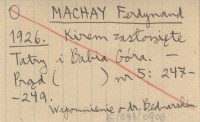 MACHAY Ferdynand
1926. Kirem zasłonięte
Tatry i Babia Góra. —
Prąd ( ) nr 5: 247-
-249.
Wspomnienie o dr. Bednarskim